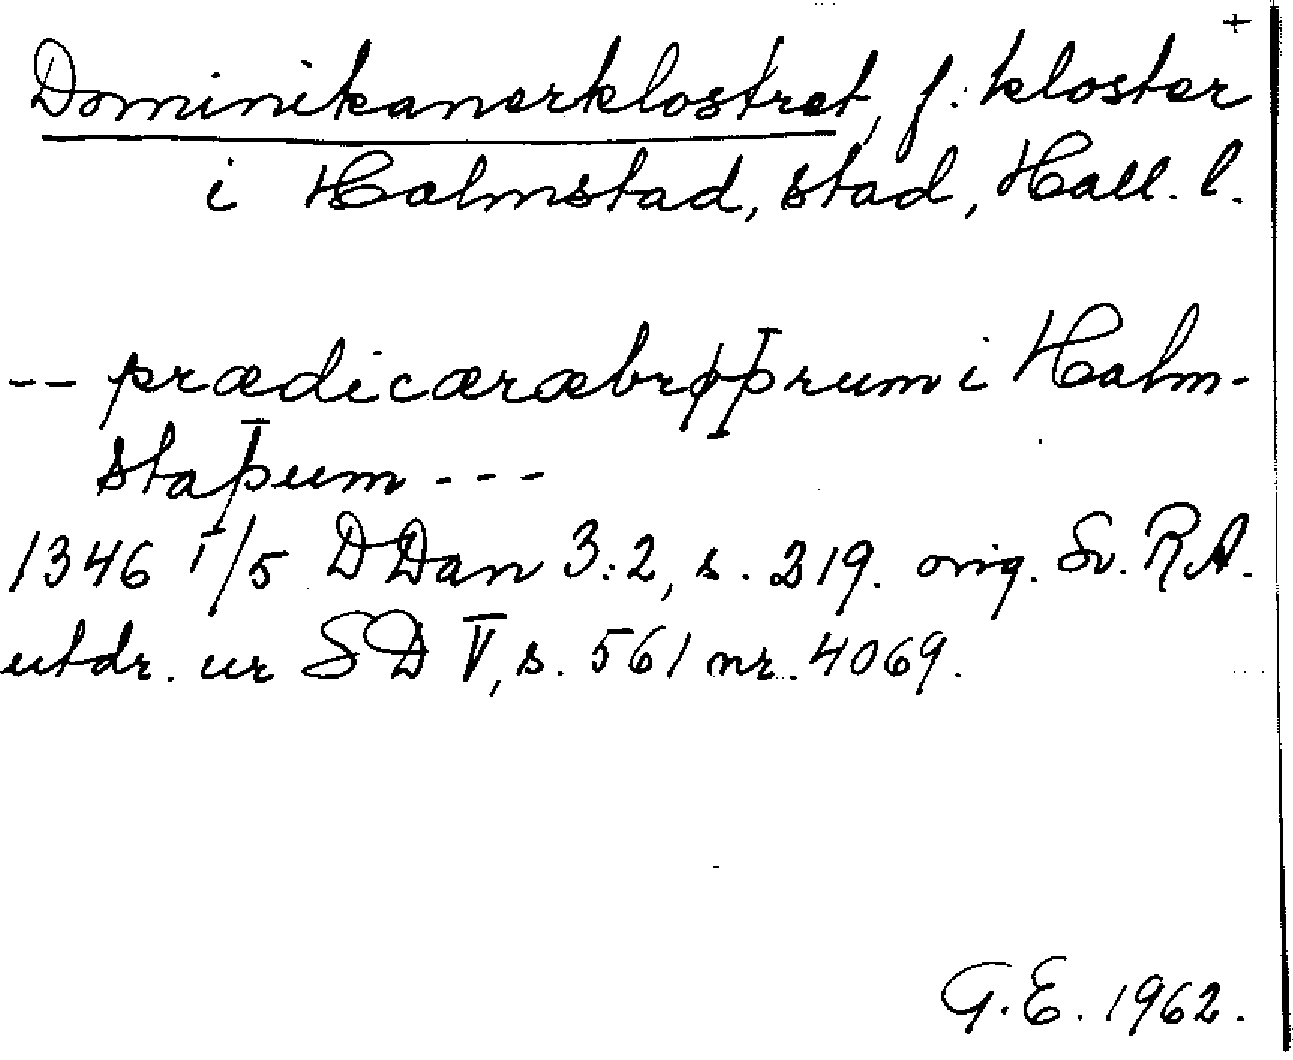 +
Dominikanerklostret, f: kloster
i Halmstad, stad, Hall. l.
-- prædicæræbrøþrum i Halm-
staþum ---
1346 1/5 DDan 3:2, s. 219. orig. Sv. RA.
utdr. ur SD V, s. 561 nr. 4069.
G.E. 1962.